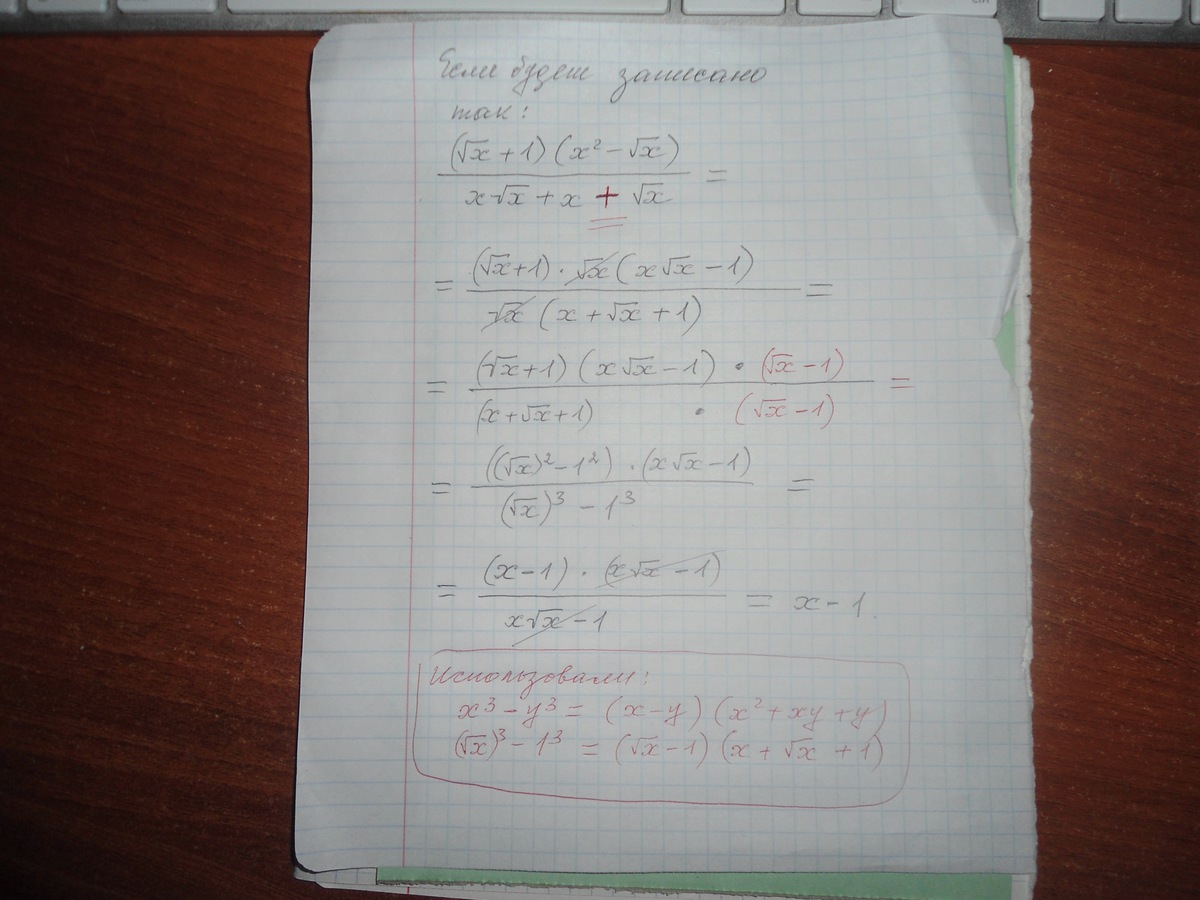 Если будет записано
так:
(√x + 1) (x² − √x)
x√x + x + √x =
= (√x+1) · √x (x√x − 1)
√x (x + √x + 1) =
= (√x+1) (x√x − 1) · (√x − 1)
(x + √x + 1) · (√x − 1) =
= ((√x)² − 1²) · (x√x − 1)
(√x)³ − 1³ =
= (x − 1) · (x√x − 1)
x√x − 1 = x − 1
Использовали:
x³ − y³ = (x − y) (x² + xy + y)
(√x)³ − 1³ = (√x − 1) (x + √x + 1)